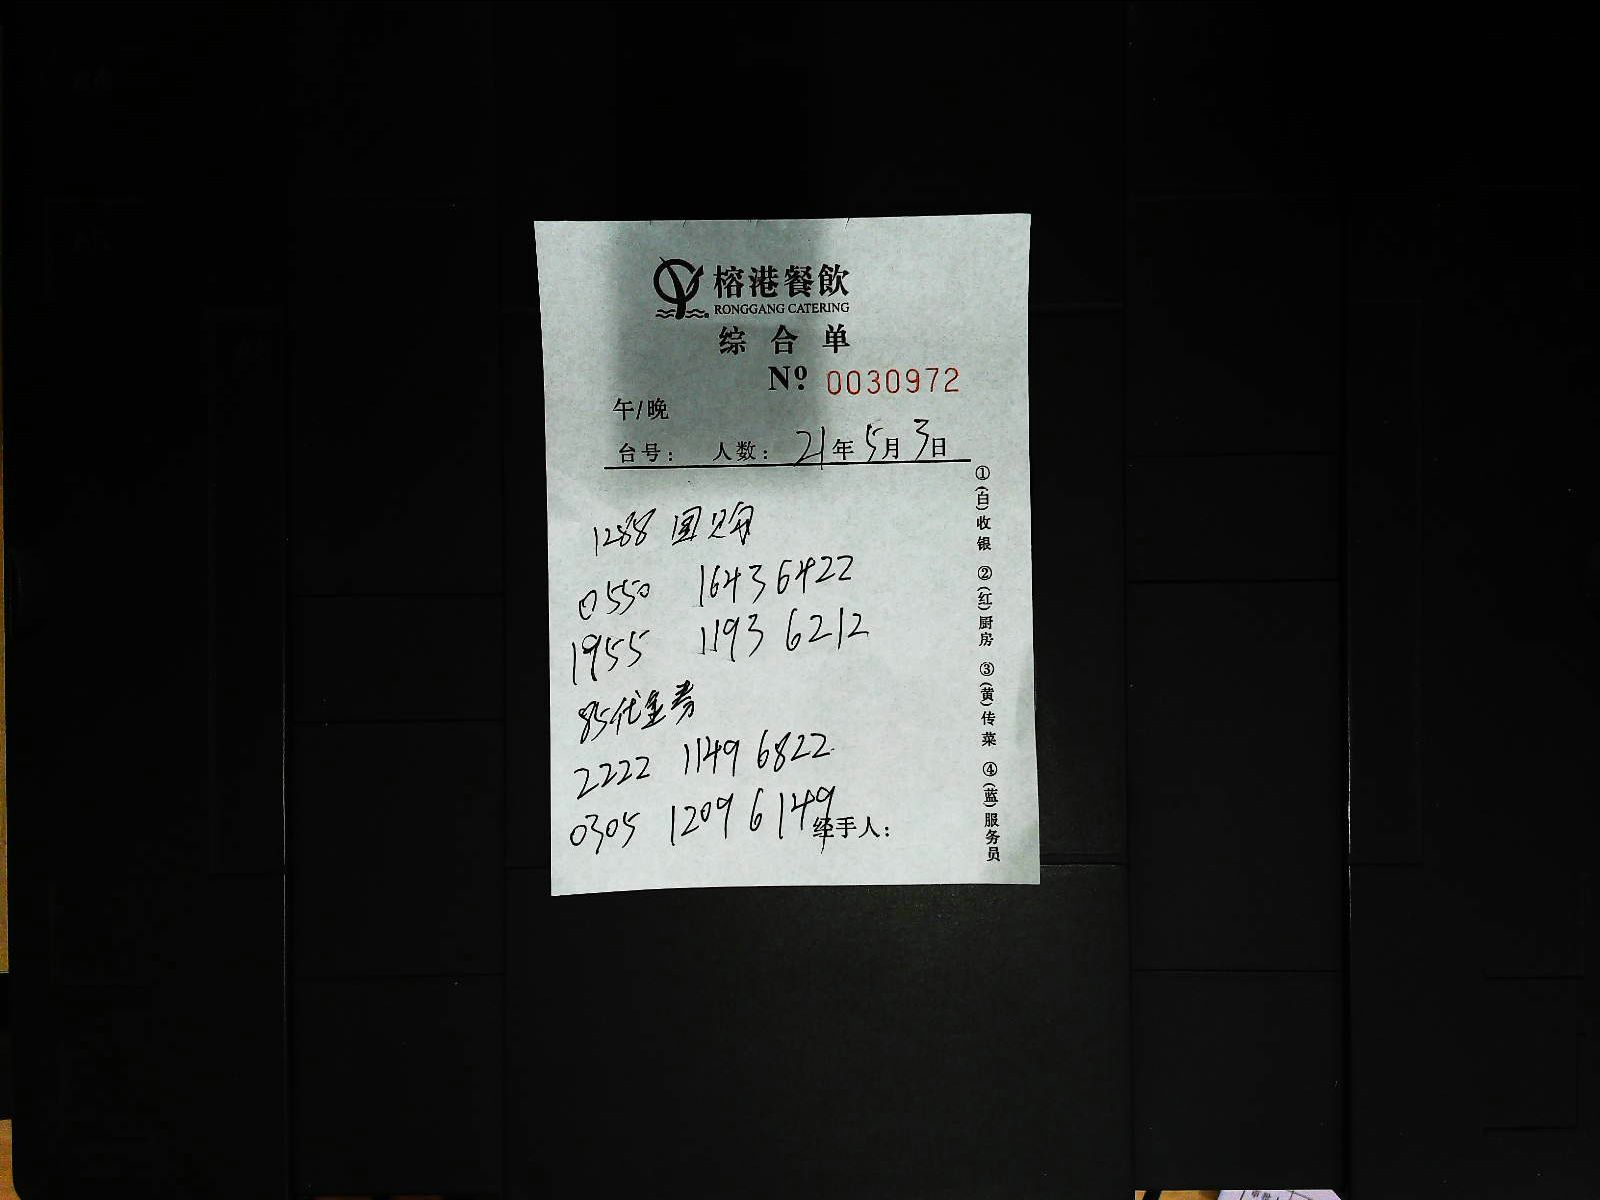 榕港餐飲
RONGGANG CATERING
综合单
Nº 0030972
午/晚
台号: 人数: 21年5月3日
1288 团购
0550 16436422
1955 11936212
85代金券
2222 11496822
0305 12096149
经手人:
①(白)收银 ②(红)厨房 ③(黄)传菜 ④(蓝)服务员